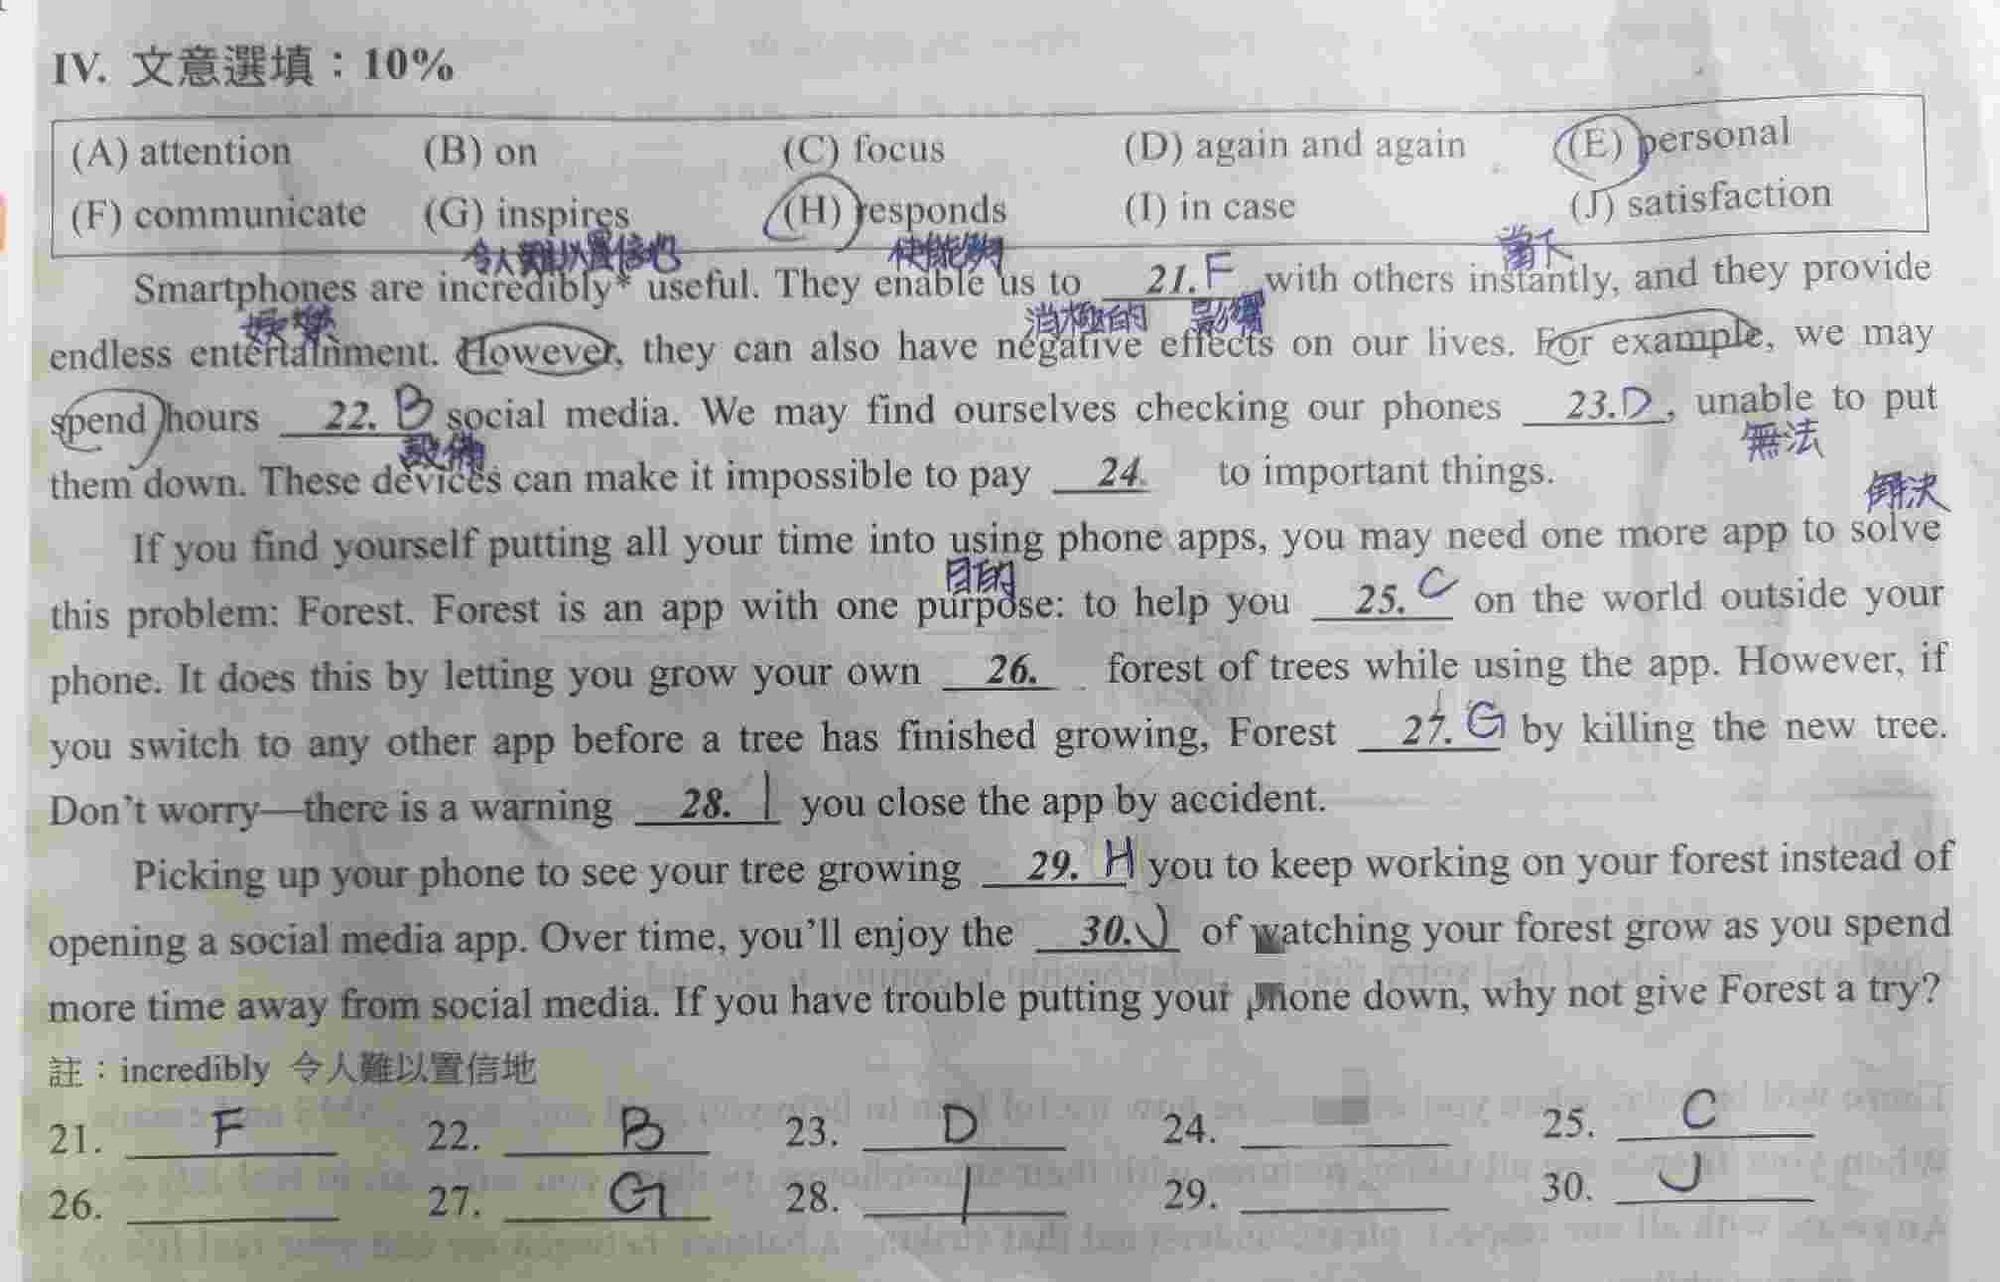 IV. 文意選填：10%
(A) attention (B) on (C) focus (D) again and again (E) personal
(F) communicate (G) inspires (H) responds (I) in case (J) satisfaction
令人難以置信地 使能夠 當下
Smartphones are incredibly* useful. They enable us to 21. F with others instantly, and they provide
娛樂 消極的 影響
endless entertainment. However, they can also have negative effects on our lives. For example, we may
spend hours 22. B social media. We may find ourselves checking our phones 23. D, unable to put
設備 無法
them down. These devices can make it impossible to pay 24. to important things.
解決
If you find yourself putting all your time into using phone apps, you may need one more app to solve
目的
this problem: Forest. Forest is an app with one purpose: to help you 25. C on the world outside your
phone. It does this by letting you grow your own 26. forest of trees while using the app. However, if
you switch to any other app before a tree has finished growing, Forest 27. G by killing the new tree.
Don't worry—there is a warning 28. I you close the app by accident.
Picking up your phone to see your tree growing 29. H you to keep working on your forest instead of
opening a social media app. Over time, you'll enjoy the 30. J of watching your forest grow as you spend
more time away from social media. If you have trouble putting your phone down, why not give Forest a try?
註：incredibly 令人難以置信地
21. F 22. B 23. D 24. 25. C
26. 27. G 28. I 29. 30. J